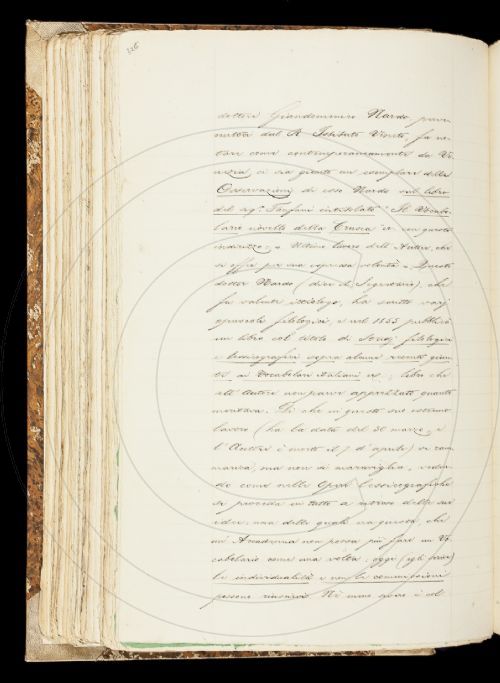 226
dottor Giandomenico Nardo, prese-
ntato dal R. Istituto Veneto, fa no-
tare come contemporaneamente da Ve-
nezia ci sia giunto un esemplare delle
Osservazioni di esso Nardo sul libro
del sig.r Fanfani intitolato "Il Vocabo-
lario novello della Crusca" con questo
indirizzo: « Ultimo lavoro dell'Autore, che
si offre per sua espressa volontà ». Questo
dottor Nardo (dice il Segretario), che
fu valente ittiologo, ha scritto varj
opuscoli filologici, e nel 1855 pubblicò
un libro col titolo di Studj filologici
e lessicografici sopra alcune recenti giun-
te ai Vocabolari italiani ec., libro che
all'autore non parve apprezzato quanto
meritava. Sì che in questo suo estremo
lavoro (ha la data del 30 marzo, e
l'Autore è morto il 7 d'aprile) si ram-
marica, ma non si maraviglia, veden-
do come nelle Opere lessicografiche
si proceda in tutto a ritroso delle sue
idee; una delle quali era questa, che
un'Accademia non possa più fare un Vo-
cabolario come una volta: oggi (egli scrive)
le individualità e non le commissioni
possono riuscirvi. Nè meno grave è